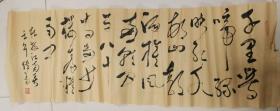 千里莺
啼绿
映红水
村山郭
酒旗风
南朝四百
八十
寺多少
楼台烟
雨中
杜牧江南春